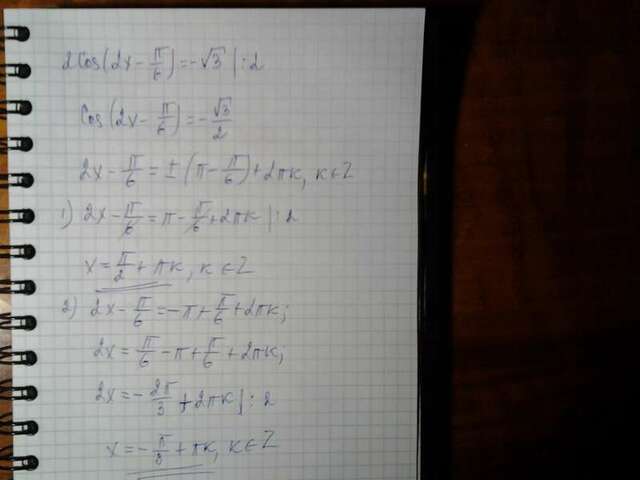 2Cos(2x - π/6) = -√3 | : 2
Cos(2x - π/6) = -√3/2
2x - π/6 = ± (π - π/6) + 2πk, k ∈ Z
1) 2x - π/6 = π - π/6 + 2πk | : 2
x = π/2 + πk, k ∈ Z
2) 2x - π/6 = -π + π/6 + 2πk;
2x = π/6 - π + π/6 + 2πk;
2x = -2π/3 + 2πk | : 2
x = -π/3 + πk, k ∈ Z